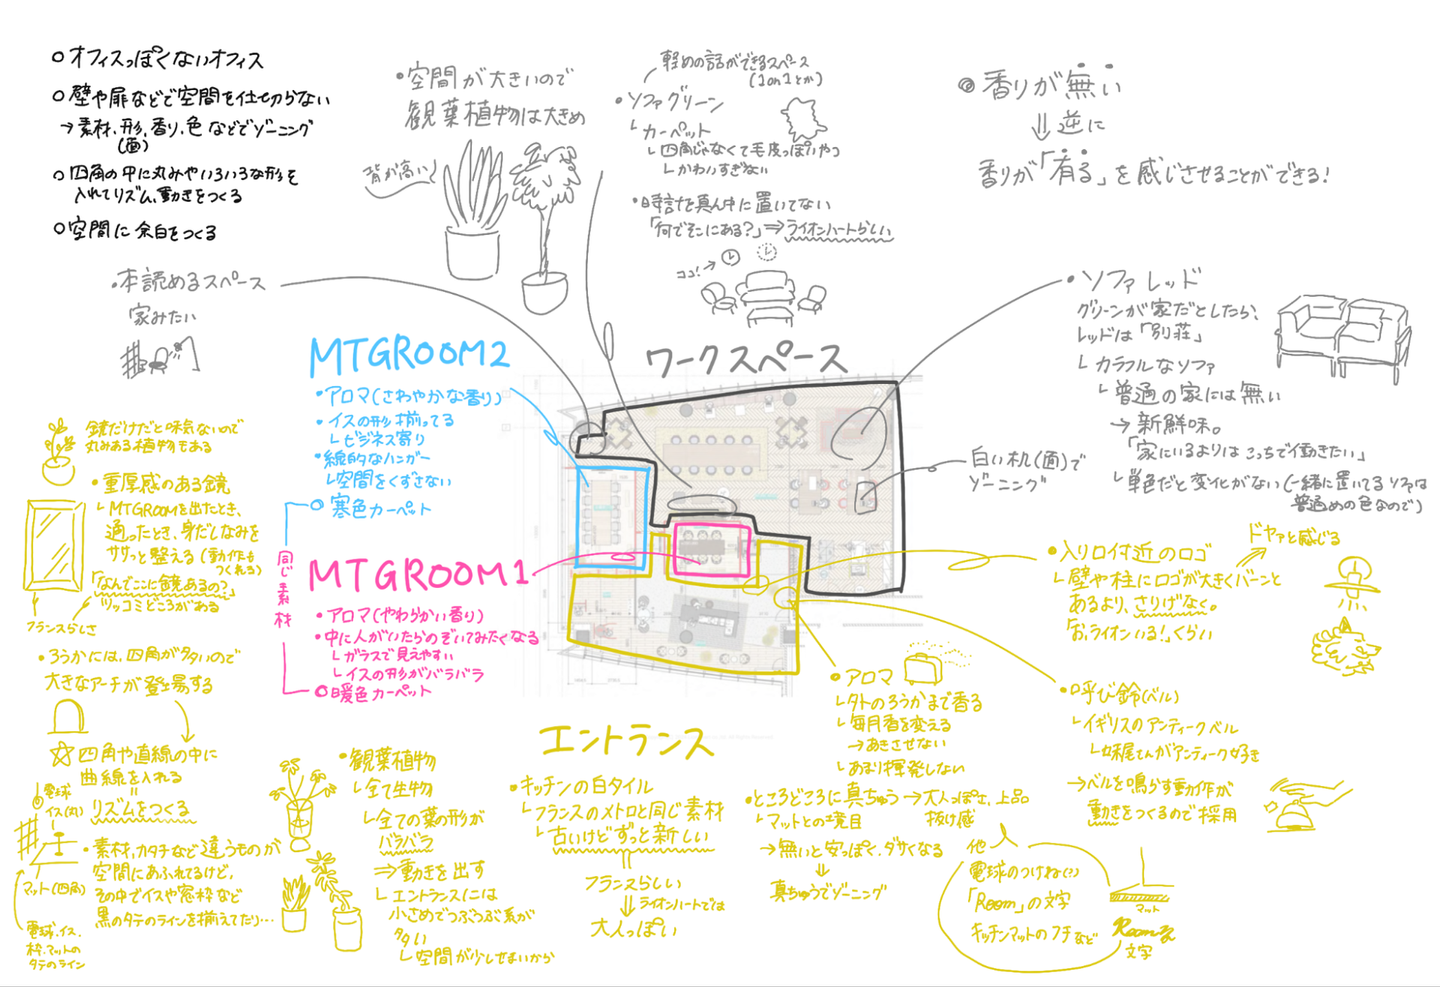 ○オフィスっぽくないオフィス
○壁や扉などで空間を仕切らない
→素材、形、香り、色などでゾーニング
(面)
○四角の中に丸みやいろいろな形を
入れてリズム、動きをつくる
○空間に余白をつくる
・空間が大きいので
観葉植物は大きめ
背が高い
軽めの話ができるスペース
(1on1とか)
・ソファグリーン
└カーペット
└四角じゃなくて毛皮っぽいやつ
└かわいすぎない
・時計を真ん中に置いてない
「何でそこにある?」⇒ライオンハートらしい
ココ!→
◎香りが無い
⇓逆に
香りが「有る」を感じさせることができる!
・本読めるスペース
家みたい
・ソファレッド
グリーンが家だとしたら、
レッドは「別荘」
└カラフルなソファ
└普通の家には無い
→新鮮味。
「家にいるよりはこっちで働きたい」
└単色だと変化がない(一緒に置いてるソファは
普通めの色なので)
白い机(面)で
ゾーニング
ワークスペース
MTGROOM2
・アロマ(さわやかな香り)
・イスの形揃ってる
└ビジネス寄り
・線的なハンガー
└空間をくずさない
○寒色カーペット
同じ素材
MTGROOM1
・アロマ(やわらかい香り)
・中に人がいたらのぞいてみたくなる
└ガラスで見えやすい
└イスの形がバラバラ
○暖色カーペット
鏡だけだと味気ないので
丸みある植物もある
・重厚感のある鏡
└MTGROOMを出たとき、
通ったとき、身だしなみを
ササっと整える(動作も
つくれる)
「なんでここに鏡あるの?」
ツッコミどころがある
フランスらしさ
・ろうかには、四角が多いので
大きなアーチが登場する
☆四角や直線の中に
曲線を入れる
=
リズムをつくる
電球
イス(丸)
マット(四角)
・素材、カタチなど違うものが
空間にあふれてるけど、
その中でイスや窓枠など
黒のタテのラインを揃えてたり…
電球、イス、
枠、マットの
タテのライン
・観葉植物
└全て生物
└全ての葉の形が
バラバラ
⇒動きを出す
└エントランスには
小さめでつぶつぶ系が
多い
└空間が少しせまいから
エントランス
・キッチンの白タイル
└フランスのメトロと同じ素材
└古いけどずっと新しい
フランスらしい
⇓ライオンハートでは
大人っぽい
・アロマ
└外のろうかまで香る
└毎月香を変える
→あきさせない
└あまり揮発しない
・ところどころに真ちゅう→大人っぽさ、上品
抜け感
└マットとの境目
→無いと安っぽく、ダサくなる
⇓
真ちゅうでゾーニング
他
電球のつけね(?)
「Room」の文字
キッチンマットのフチなど
マット
Room
文字
・入り口付近のロゴ
ドヤァと感じる
└壁や柱にロゴが大きくバーンと
あるより、さりげなく。
「お、ライオンいる!」くらい
・呼び鈴(ベル)
└イギリスのアンティークベル
└妹尾さんがアンティーク好き
→ベルを鳴らす動作が
動きをつくるので採用